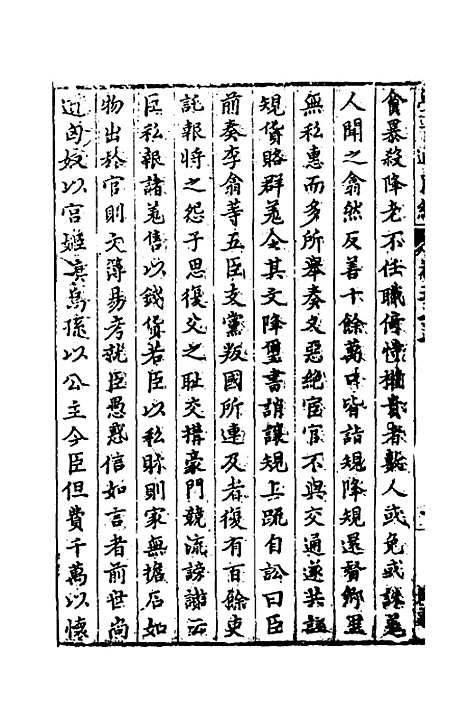 貪暴殺降老不任職倚恃權貴者數人或免或誅羌
人聞之翕然反善十餘萬口皆詣規降規還督鄉里
無私惠而多所舉奏又惡絶宦官不與交通遂共誣
規貨賂群羌令其文降璽書誚讓規上疏自訟曰臣
前奏李翕等五臣支黨叛國所連及者復有百餘吏
託報將之怨子思復父之耻交搆豪門競流謗讟云
臣私報諸羌售以錢貨若臣以私財則家無擔石如
物出於官則文簿易考就臣愚惑信如言者前世尚
遺匈奴以宮姬鎮烏孫以公主今臣但費千萬以懷